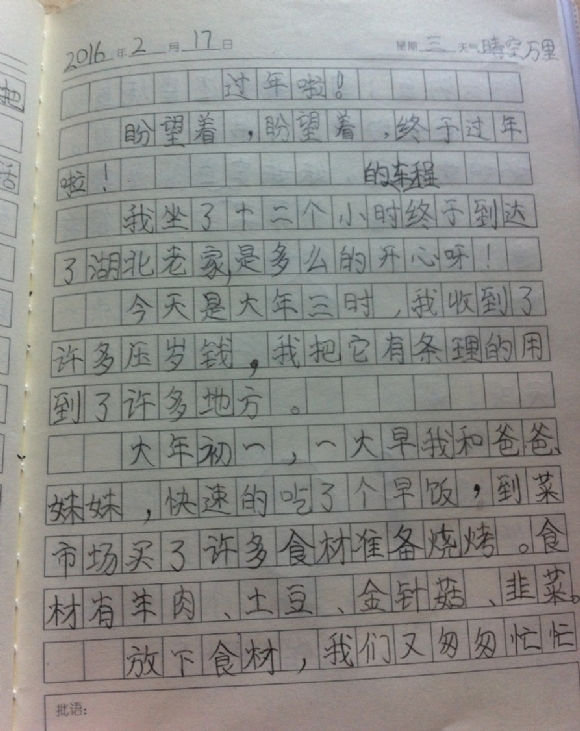 2016年2月17日 星期三 天气晴空万里
过年啦！
盼望着，盼望着，终于过年
啦！
的车程
我坐了十二个小时终于到达
了湖北老家,是多么的开心呀！
今天是大年三时，我收到了
许多压岁钱，我把它有条理的用
到了许多地方。
大年初一，一大早我和爸爸、
妹妹，快速的吃了个早饭，到菜
市场买了许多食材准备烧烤。食
材有羊肉、土豆、金针菇、韭菜。
放下食材，我们又匆匆忙忙
批语：